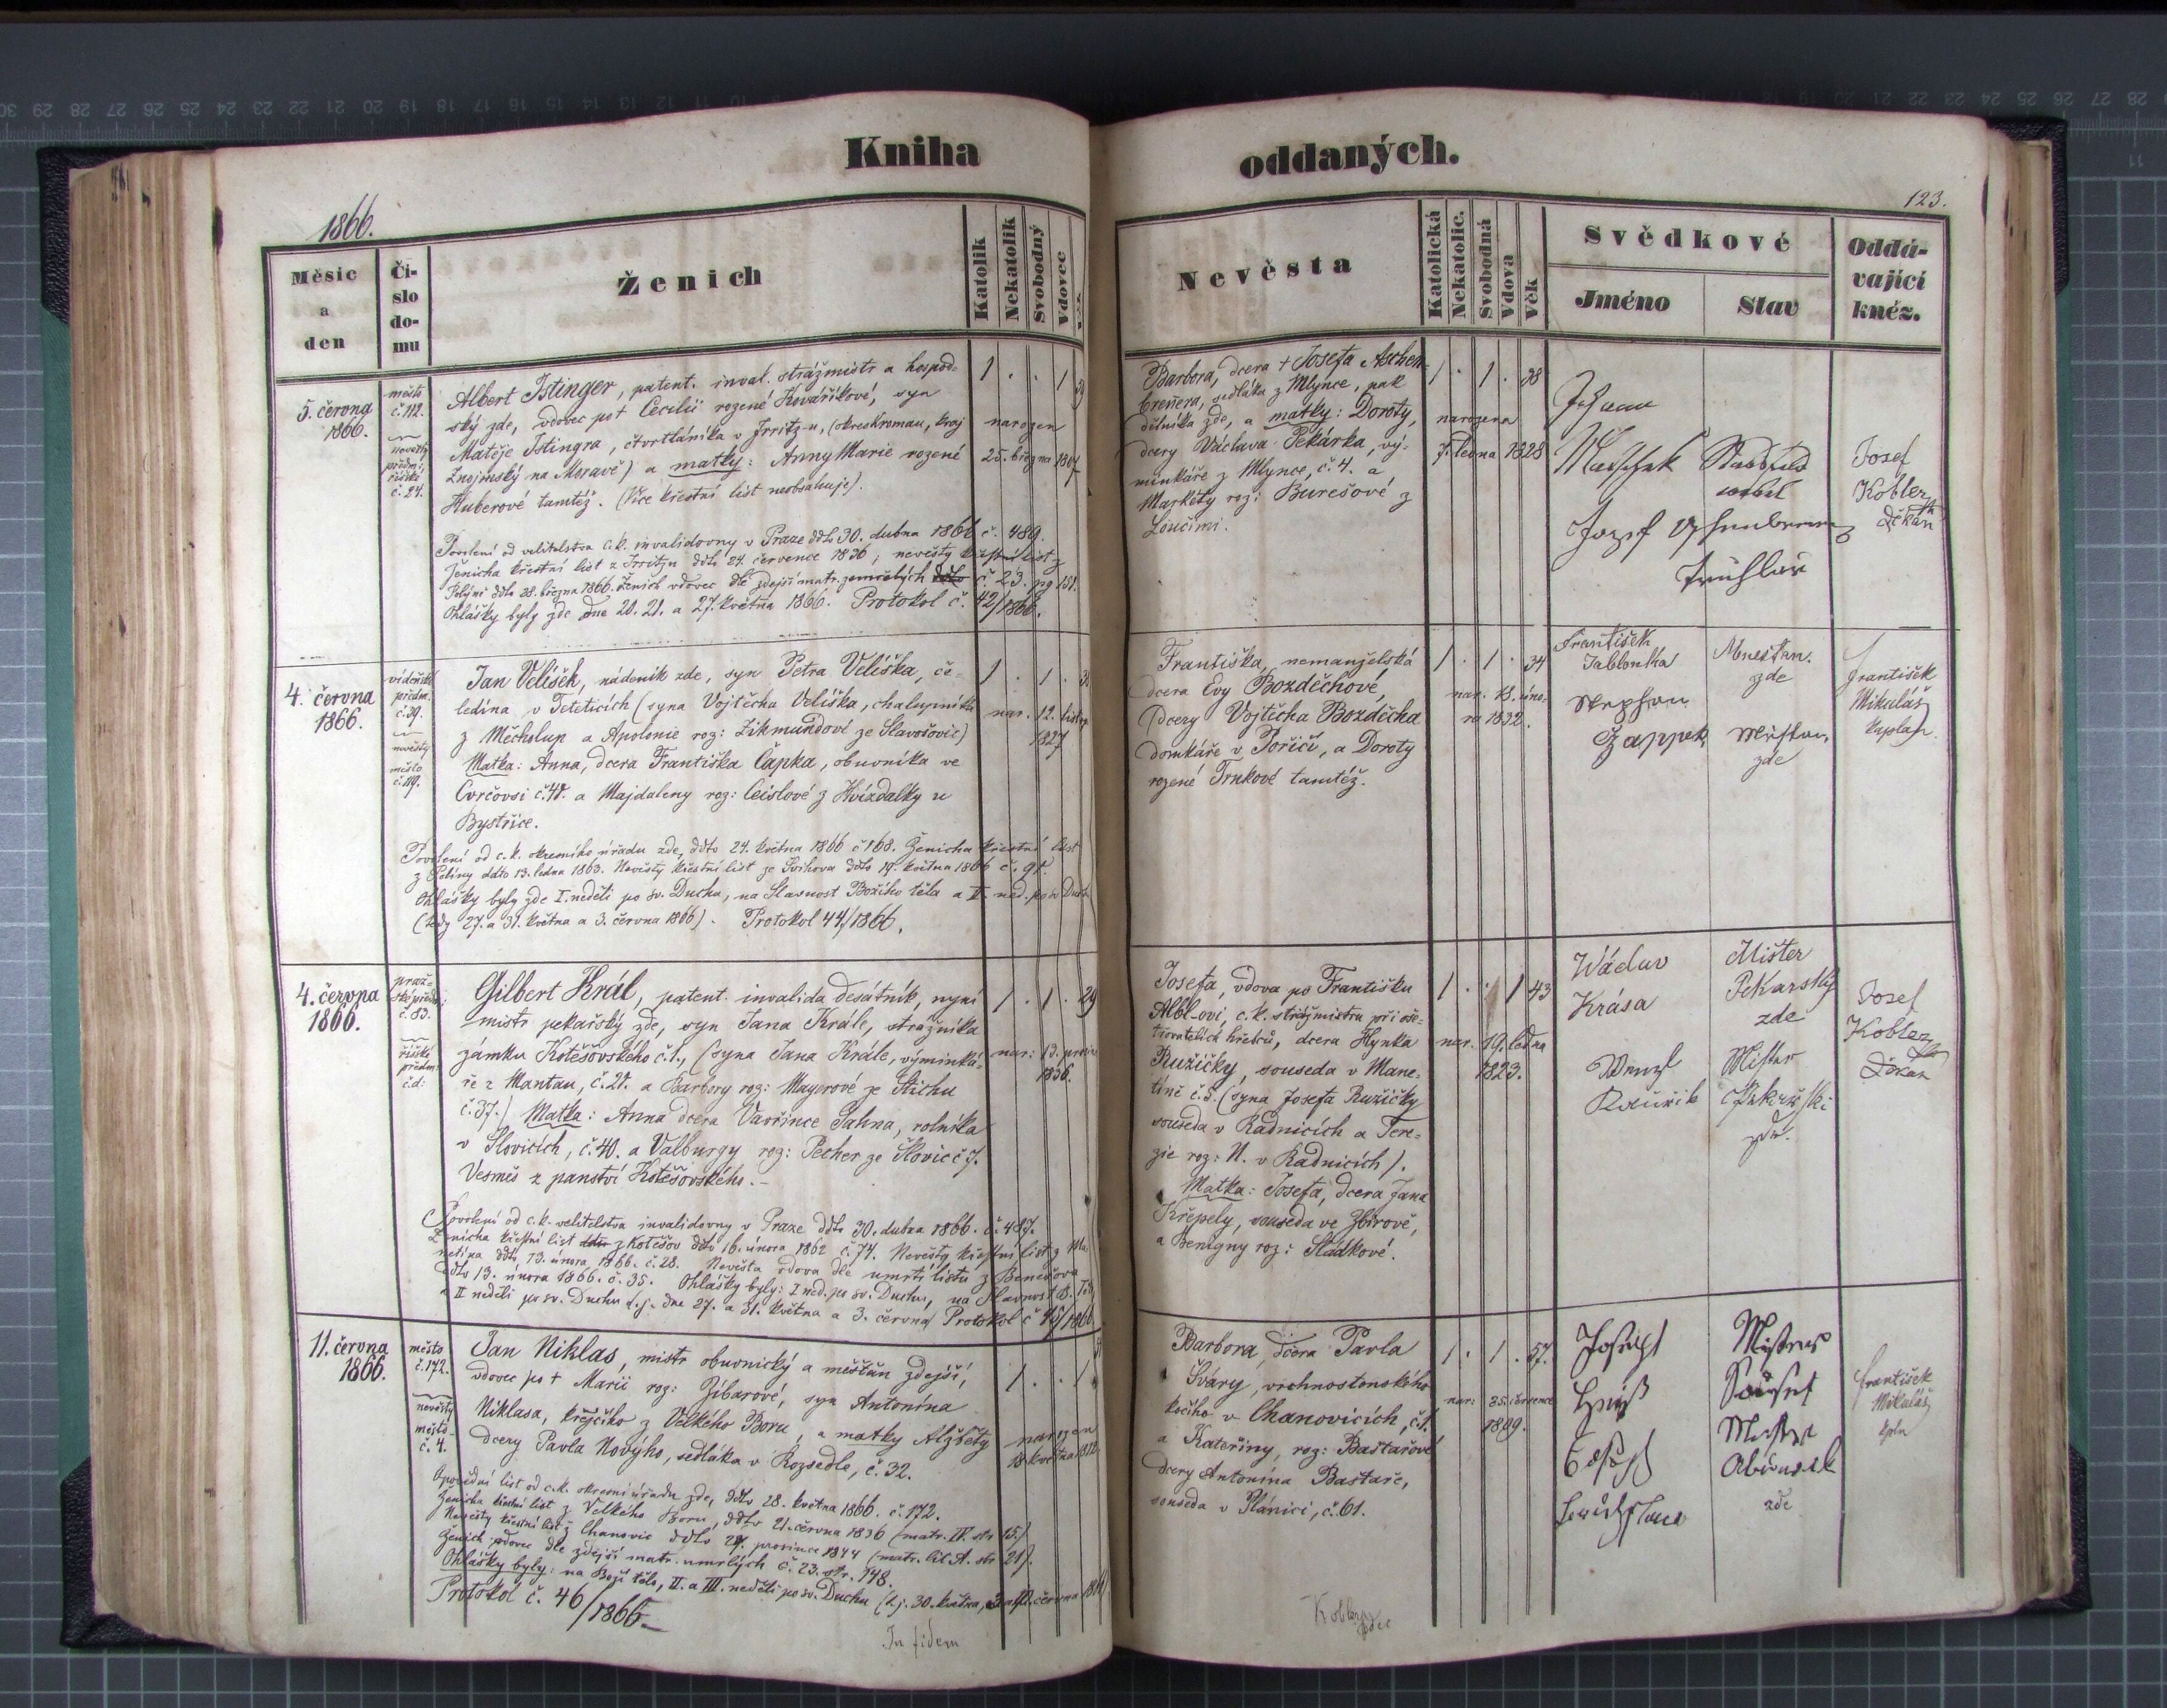 Kniha
oddaných.
1866.
123.
Měsíc
a
den
Čí-
slo
do-
mu
Ženich
Katolík
Nekatolík
Svobodný
Vdovec
Nevěsta
Katolická
Nekatolic.
Svobodná
Vdova
Věk
Svědkové
Jméno
Stav
Oddá-
vající
kněz.
5. června
1866.
město
č. 112.
nevěsty
předm:
říšské
č. 24.
Albert Istinger, patent. inval. strážmistr a hospod-
ský zde, vdovec po † Cecilii rozené Kovaříkové, syn
Matěje Istingra, čtvrtláníka v Irritz-u, (okres Kromau, kraj
Znojmský na Moravě) a matky: Anny Marie rozené
Huberové tamtéž. (Více křestní list neobsahuje).
1 . . 1
narozen
25. března 1807
Povolení od velitelstva c.k. invalidovny v Praze ddto 30. dubna 1866 č. 489.
Ženicha křestní list z Irritzu ddto 24. července 1836; nevěsty křestní list z
ddto 28. března 1866. Ženich vdovec dle zdejší matr. zemřelých č. 23. pg 151.
Ohlášky byly zde dne 20. 21. a 27. května 1866. Protokol č. 42/1866.
Barbora, dcera † Josefa Aschen-
brenera, sedláka z Mlynce, pak
dělníka zde, a matky: Doroty,
dcery Václava Pekárka, vý-
minkáře z Mlynce, č. 4. a
Markéty roz: Burešové z
Loučimi.
1 . 1 . 38
narozena
7. ledna 1828
Johann
Josef
truhlář
Josef
Kobler
děkan
4. června
1866.
vídeňské
předm.
č. 39.
nevěsty
město
č. 119.
Jan Velíšek, nádeník zde, syn Petra Velíška, če-
ledína v Teteticích (syna Vojtěcha Velíška, chalupníka
z Měcholup a Apolonie roz: Zikmundové ze Slavošovic)
Matka: Anna, dcera Františka Čapka, obuvníka ve
Cvrčovsi č. 41. a Majdaleny roz: Ceislové z Hvízdalky u
Bystřice.
1 . 1 .
nar. 12. listop.
1827
Povolení od c.k. okresního úřadu zde, ddto 24. května 1866 č 168. Ženicha křestní list
z Poliny ddto 13. ledna 1863. Nevěsty křestní list ze Švihova ddto 19. května 1866 č. 91.
Ohlášky byly zde I. neděli po sv. Duchu, na Slavnost Božího těla a II. ned. po sv Duchu
(tedy 27. a 31. května a 3. června 1866). Protokol 44/1866.
Františka, nemanželská
dcera Evy Bozděchové,
dcery Vojtěcha Bozděcha
domkáře v Poříčí, a Doroty
rozené Trnkové tamtéž.
1 . 1 . 34
nar. 13. úno-
ra 1832.
František
Jablonka
Stephan
Czappek
Měšťan.
zde
zde
František
Mikuláš
kaplan.
4. června
1866.
praž-
ské předm:
č. 83.
říšské
předm:
č. d:
Gilbert Král, patent. invalida desátník, nyní
mistr pekařský zde, syn Jana Krále, strážníka
zámku Kotěšovského č. 1., (syna Jana Krále, výminká-
ře z Mantau, č. 21. a Barbory roz: Mayerové ze Stichu
č. 37.) Matka: Anna dcera Vavřince Pahna, rolníka
v Slovicích, č. 40. a Valburgy roz: Pecher ze Slovic č 7.
Vesměs z panství Kotěšovského.–
1 . 1 . 29
nar: 13. prosin
1836.
Povolení od c.k. velitelstva invalidovny v Praze ddto 30. dubna 1866. č. 487.
Ženicha křestní list z Kotěšov ddto 16. února 1862 č. 74. Nevěsty křestní list z Ma-
netína ddto 13. února 1866. č. 28. Nevěsta vdova dle úmrtí listu z Benešova
ddto 13. února 1866. č. 35. Ohlášky byly: I ned. po sv. Duchu, na Slavnost B. Těla
a II neděli po sv. Duchu t.j. dne 27. a 31. května a 3. června. Protokol č 45/1866
Josefa, vdova po Františku
Albl-ovi, c.k. strážmistru při oše-
třovatelích hřebců, dcera Hynka
Ružičky, souseda v Mane-
tíně č. 5. (syna Josefa Ružičky
souseda v Radnicích a Tere-
zie roz: N. v Radnicích).
Matka: Josefa, dcera Jana
Křepely, souseda ve Zbirově,
a Benigny roz: Sládkové.
1 . . 1 43
nar. 19. ledna
1823.
Wáclav
Krása
Wenzl
Mister
Pekarský
zde
Mister
zde.
Josef
Kobler
Děkan
11. června
1866.
město
č. 172.
nevěsty
město
č. 4.
Jan Niklas, mistr obuvnický a měšťan zdejší,
vdovec po † Marii roz: Zíbarové, syn Antonína
Niklasa, krejčího z Velkého Boru, a matky Alžběty
dcery Pavla Novýho, sedláka v Rozsedle, č. 32.
1 . . 1
narozen
18. května 1812
Opovědní list od c.k. okresní úřadu zde, ddto 28. května 1866. č. 172.
Ženicha křestní list z Velkého Boru, ddto 21. června 1836 (matr. IV. str 15.)
Nevěsty křestní list z Chanovic ddto 29. prosince 1844 (matr. lit A. str 21).
Ženich vdovec dle zdejší matr. umrlých č. 23. str. 148.
Ohlášky byly: na Boží tělo, II. a III. neděli po sv. Duchu (t.j. 30. května, 3. a 10. června 1866)
Protokol č. 46/1866.
In fidem
Barbora, dcera Pavla
Šváry, vrchnostenského
kočího v Chanovicích, č. 1.
a Kateřiny, roz: Baštařové
dcery Antonína Baštaře,
souseda v Plánici, č. 61.
1 . 1 . 57.
nar: 25. července
1809.
Joseph
zde
František
Mikuláš
kpln
Kobler